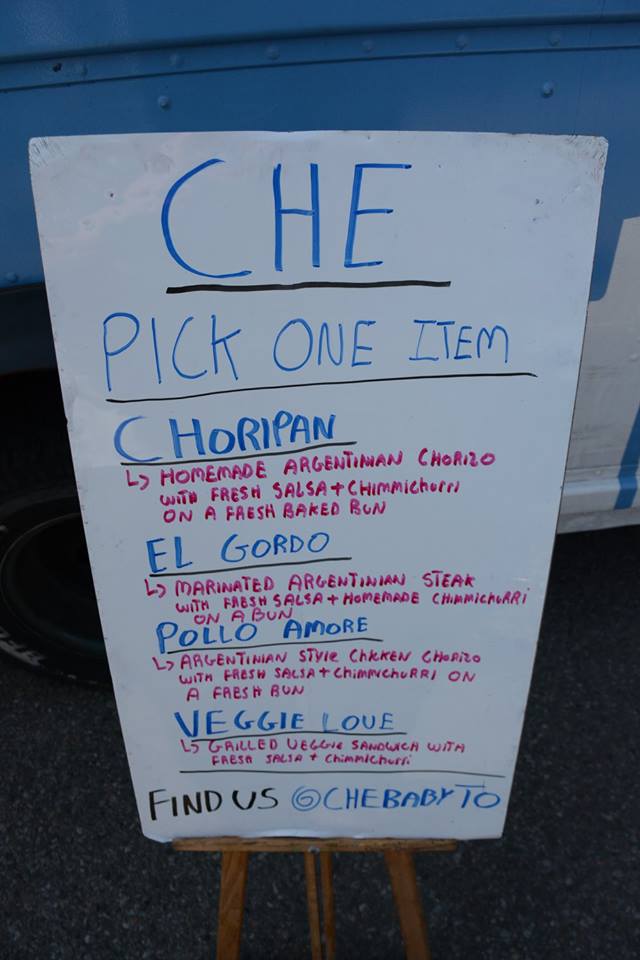 CHE
PICK ONE ITEM
CHORIPAN
↳ HOMEMADE ARGENTINIAN CHORIZO
WITH FRESH SALSA + CHIMMICHURRI
ON A FRESH BAKED BUN
EL GORDO
↳ MARINATED ARGENTINIAN STEAK
WITH FRESH SALSA + HOMEMADE CHIMMICHURRI
ON A BUN
POLLO AMORE
↳ ARGENTINIAN STYLE CHICKEN CHORIZO
WITH FRESH SALSA + CHIMMYCHURRI ON
A FRESH BUN
VEGGIE LOVE
↳ GRILLED VEGGIE SANDWICH WITH
FRESH SALSA + CHIMMICHURRI
FIND US @CHEBABYTO